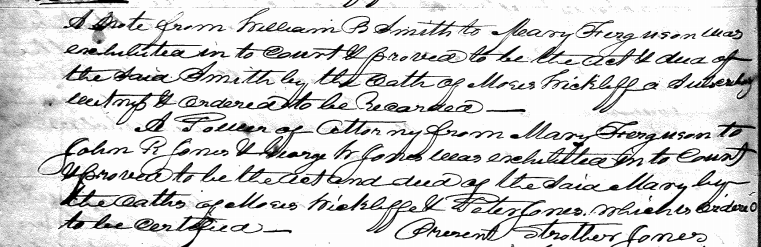 A Note from William B Smith to Mary Ferguson was
exhibited in to Court & proved to be the act & deed of
the said Smith by the Oath of Moses Wickliff a Subscribg
witness & ordered to be Recorded —
A Power of attorny from Mary Ferguson to
John R Jones & George W Jones was exhibited in to Court
& proved to be the act and deed of the said Mary by
the Oaths of Moses Wickliffe & Peter Jones. which is Ordered
to be Certified — Present Strother Jones